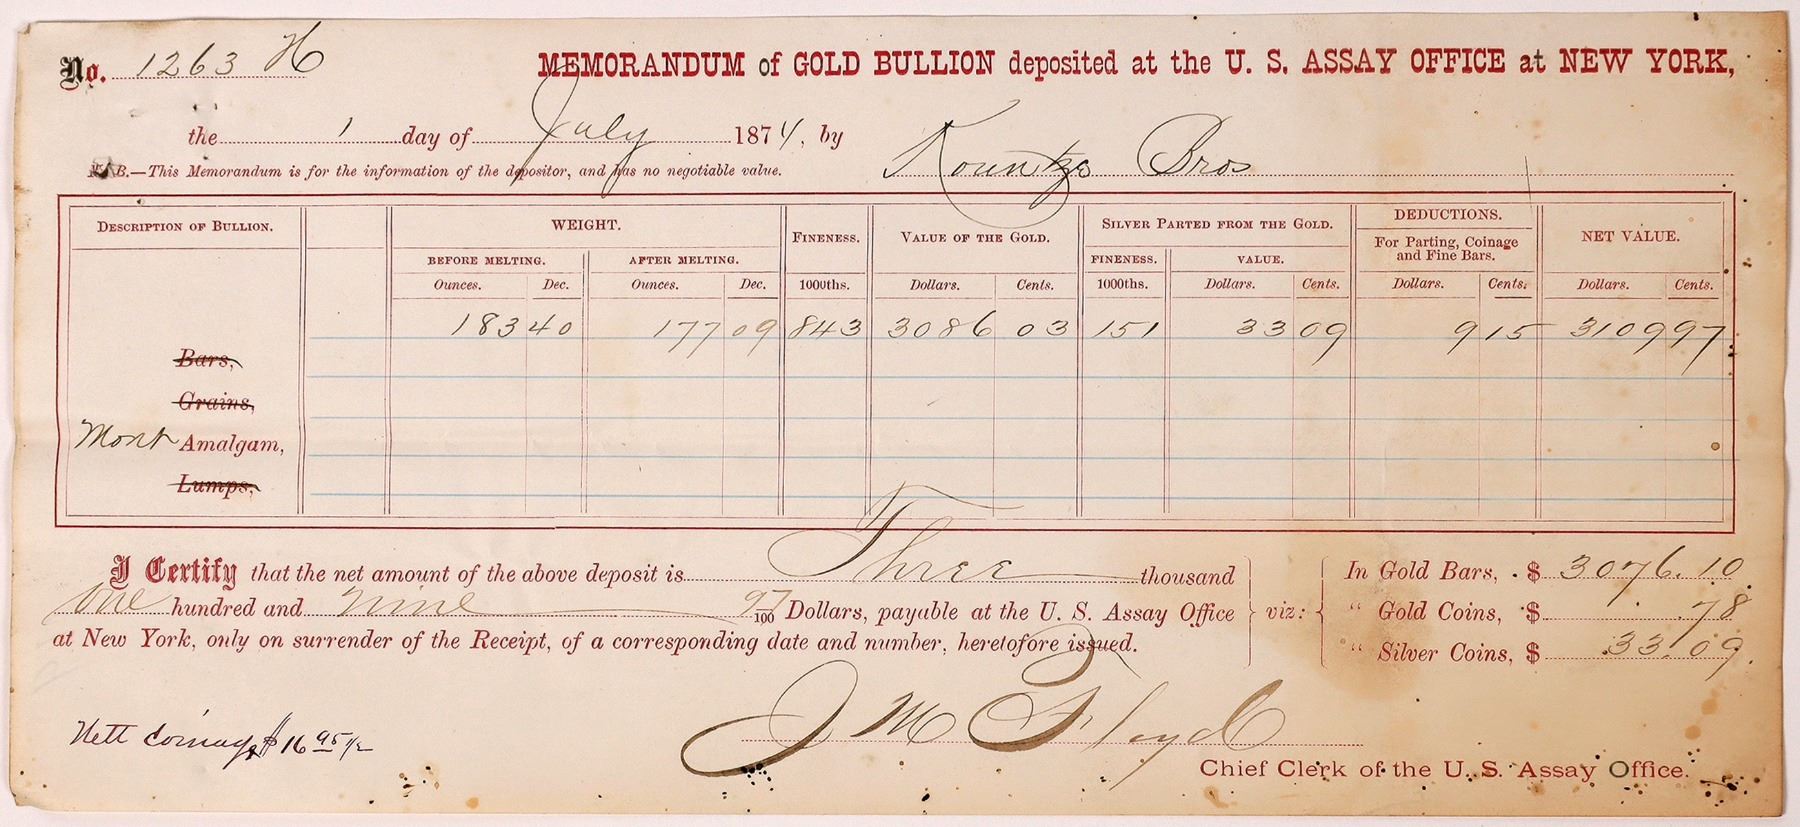 No. 1263 H
MEMORANDUM of GOLD BULLION deposited at the U. S. ASSAY OFFICE at NEW YORK,
the 1 day of July 1874, by Kountze Bros
N.B.—This Memorandum is for the information of the depositor, and has no negotiable value.
DESCRIPTION OF BULLION. WEIGHT. FINENESS. VALUE OF THE GOLD. SILVER PARTED FROM THE GOLD. DEDUCTIONS. NET VALUE.
For Parting, Coinage
and Fine Bars.
BEFORE MELTING. AFTER MELTING. FINENESS. VALUE.
Ounces. Dec. Ounces. Dec. 1000ths. Dollars. Cents. 1000ths. Dollars. Cents. Dollars. Cents. Dollars. Cents.
183 40 177 09 843 3086 03 151 33 09 9 15 3109 97
Bars,
Grains,
Mont Amalgam,
Lumps,
I Certify that the net amount of the above deposit is Three thousand
one hundred and nine 97/100 Dollars, payable at the U. S. Assay Office
at New York, only on surrender of the Receipt, of a corresponding date and number, heretofore issued.
viz:
In Gold Bars, $ 3076.10
" Gold Coins, $ .78
" Silver Coins, $ 33.09
J M Floyd
Nett coinage $ 16 95 1/2
Chief Clerk of the U. S. Assay Office.